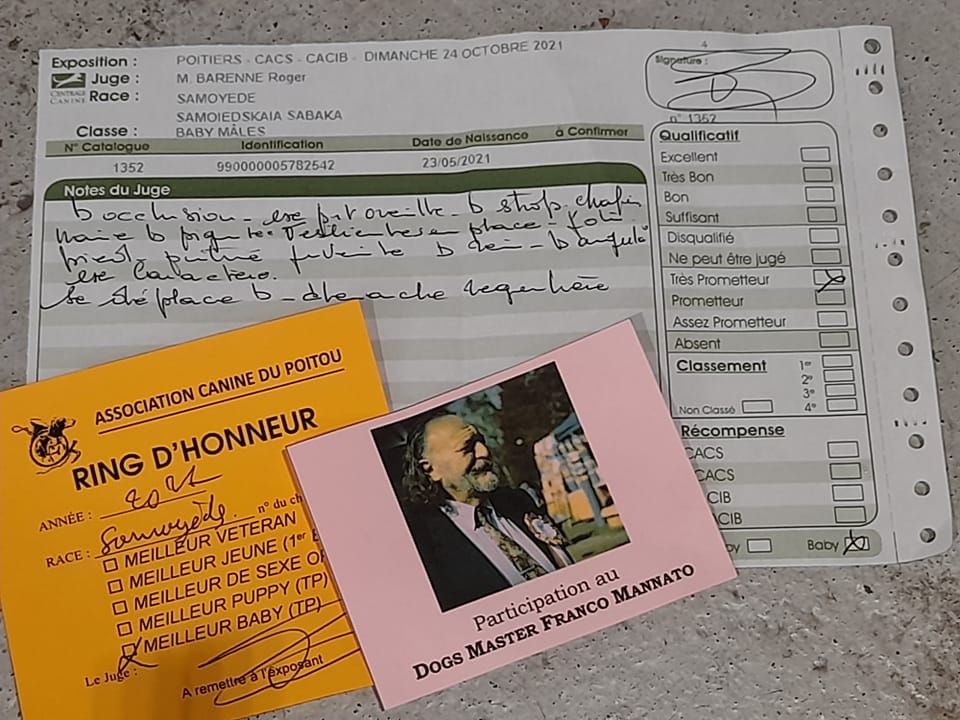 Exposition : POITIERS - CACS - CACIB - DIMANCHE 24 OCTOBRE 2021
CENTRALE CANINE
Juge : M. BARENNE Roger
Race : SAMOYEDE
SAMOIEDSKAIA SABAKA
Classe : BABY MÂLES
4
Signature :
n° 1352
N° Catalogue Identification Date de Naissance à Confirmer
1352 990000005782542 23/05/2021
Notes du Juge
b occlusion - exc b stop
b en place
b
exc caractère.
se déplace b - régulière
Qualificatif
Excellent
Très Bon
Bon
Suffisant
Disqualifié
Ne peut être jugé
Très Prometteur
Prometteur
Assez Prometteur
Absent
Classement 1er
2e
3e
Non Classé 4e
Récompense
CACS
CACS
CIB
CIB
by Baby
ASSOCIATION CANINE DU POITOU
RING D'HONNEUR
ANNÉE : 2021
RACE : Samoyède n° du ch
MEILLEUR VETERAN
MEILLEUR JEUNE (1er
MEILLEUR DE SEXE O
MEILLEUR PUPPY (TP)
MEILLEUR BABY (TP)
Le Juge :
A remettre à l'exposant
Participation au
DOGS MASTER FRANCO MANNATO